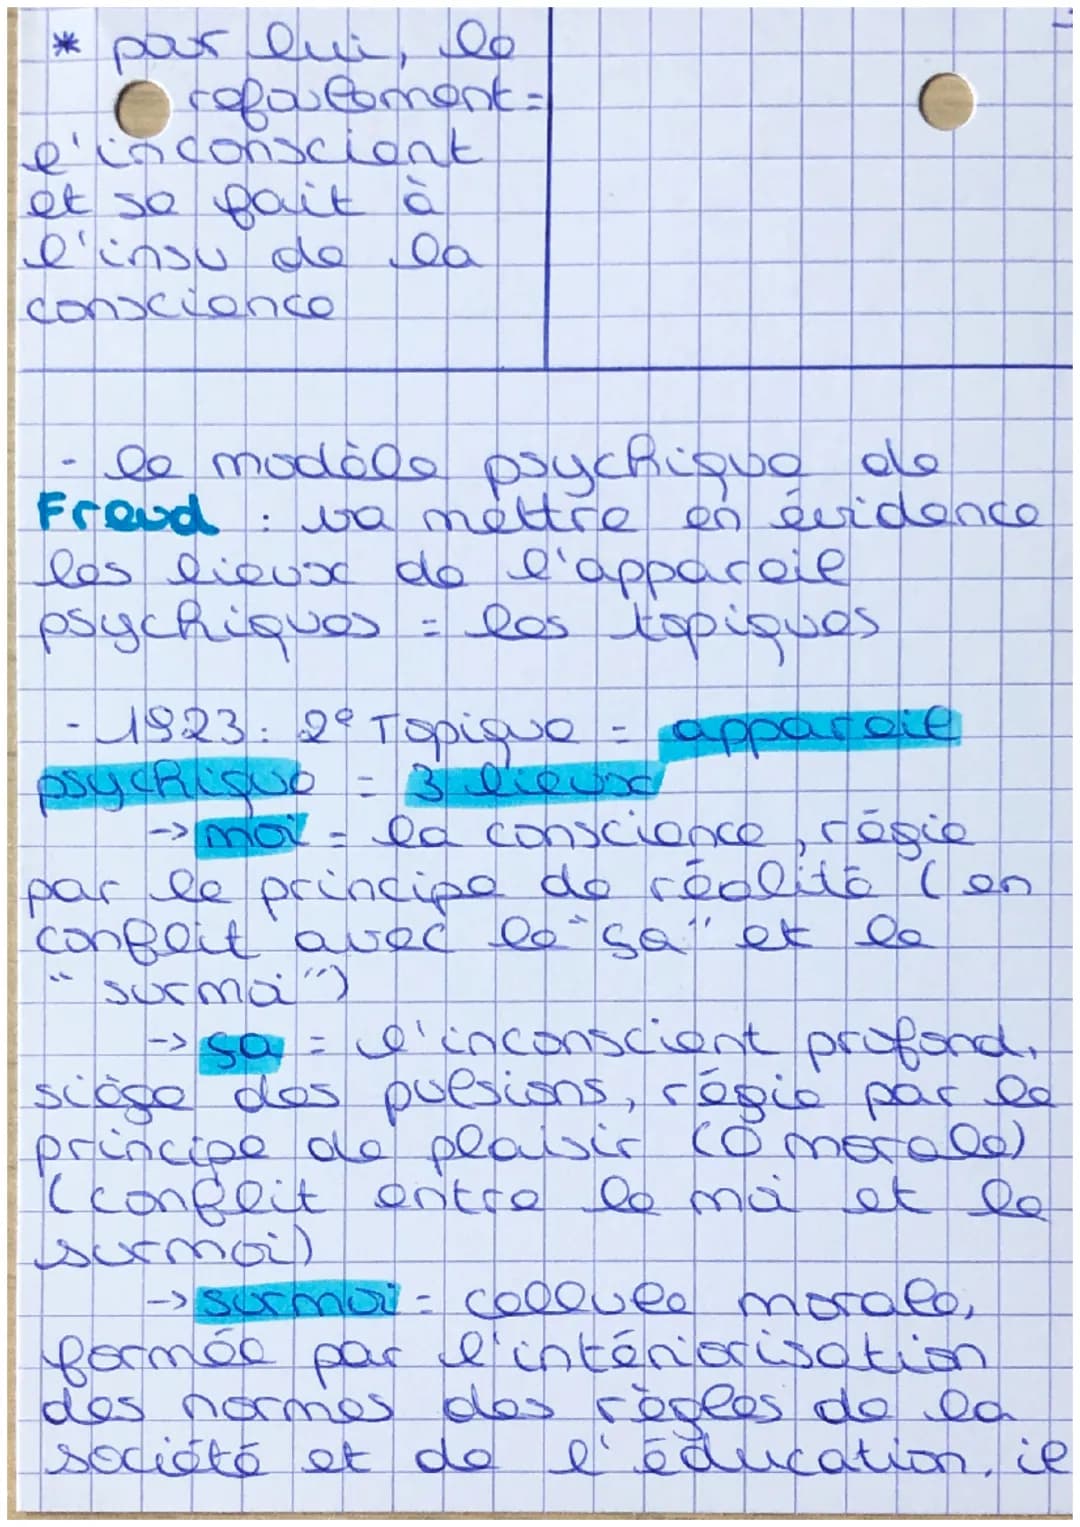 * pour lui, le
refoulement =
l'inconscient
et se fait à
l'insu de la
conscience
- le modèle psychique de
Freud : va mettre en évidence
les lieux de l'appareil
psychiques = les topiques
- 1923 : 2e Topique = appareil
psychique = 3 lieux
-> moi = la conscience, régie
par le principe de réalité (en
conflit avec le "ça" et le
"surmoi")
-> ça = l'inconscient profond,
siège des pulsions, régie par le
principe de plaisir (0 morale)
(conflit entre le moi et le
surmoi)
-> surmoi = cellule morale,
formée par l'intériorisation
des normes des règles de la
société et de l'éducation, il